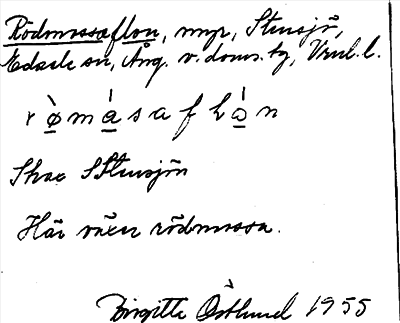 Rödmossaflon, myr, Stensjö,
Edsele sn, Ång. v. doms. tg, Vnul. l.
r ò̱ m á̱ s a f l ò̱ n
Ske S Stensjön
Här växer rödmossa.
Birgitta Östlund 1955